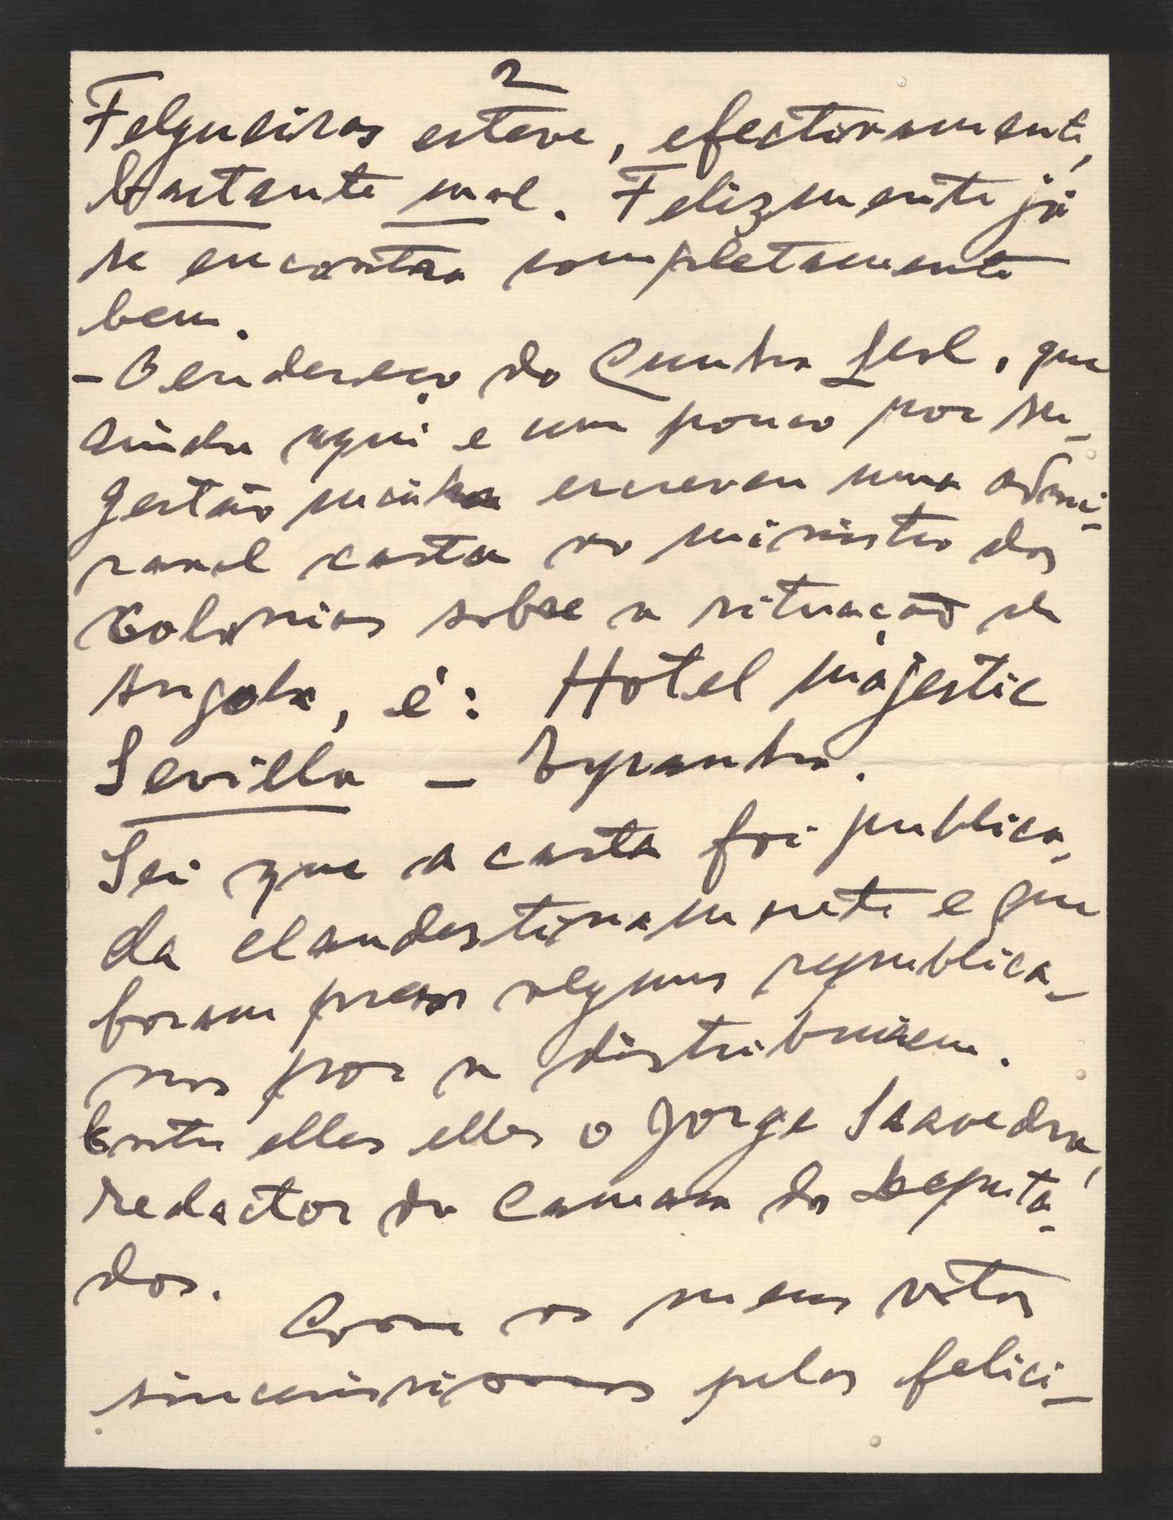 2
Felgueiras esteve, efectivamente,
bastante mal. Felizmente já
se encontra completamente
bem.
- O endereço do Cunha Leal, que
ainda aqui e um pouco por su-
gestão minha escreveu uma admi-
ravel carta ao ministro das
Colonias sobre a situação de
Angola, é: Hotel Majestic
Sevilla - Espanha.
Sei que a carta foi publica-
da clandestinamente e que
foram presos alguns republica-
nos por a distribuirem.
Entre elles elles o Jorge Saavedra,
redactor da Camara dos Deputa-
dos.
Com os meus votos
sincerissimos pelas felici-